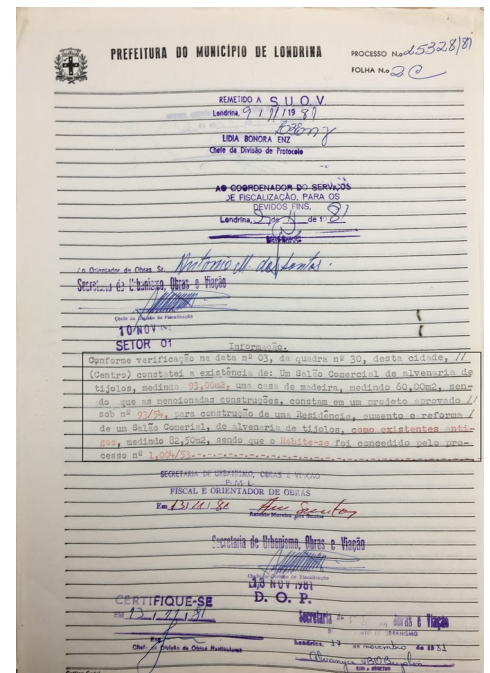 PREFEITURA DO MUNICÍPIO DE LONDRINA
PROCESSO N.o 25328/81
FOLHA N.o 2C
REMETIDO A S.U.O.V.
Londrina, 9 / 11 / 19 81
LIDIA BONORA ENZ
Chefe da Divisão de Protocolo
AO COORDENADOR DO SERVIÇOS
DE FISCALIZAÇÃO, PARA OS
DEVIDOS FINS.
Londrina, 9 de 11 de 19 81
Orientador de Obras, Sr. Antonio M. dos Santos.
Secretaria de Urbanismo, Obras e Viação
Chefe da Divisão de Fiscalização
10 NOV
SETOR 01
Informação.
Conforme verificação na data nº 03, da quadra nº 30, desta cidade, //
(Centro) constatei a existência de: Um Salão Comercial de alvenaria de
tijolos, medindo 93,00m2, uma casa de madeira, medindo 60,00m2, sen-
do que as mencionadas construções, constam em um projeto aprovado //
sob nº 93/54, para construção de uma Residência, aumento e reforma /
de um Salão Comerial, de alvenaria de tijolos, como existentes anti-
gos, medindo 82,50m2, sendo que o Habite-se foi concedido pelo pro-
cesso nº 1,004/53.-.-.-.-.-.-.-.-.-.-.-.-.-.-.-.-.-.-.-.-.-.-.-
SECRETARIA DE URBANISMO, OBRAS E VIAÇÃO
P. M. L.
FISCAL E ORIENTADOR DE OBRAS
Em 13/11/81
Antonio Moreira dos Santos
Secretaria de Urbanismo, Obras e Viação
Chefe da Divisão de Fiscalização
13 NOV 1981
D. O. P.
CERTIFIQUE-SE
EM 13 / 11 / 81
Eng.
Chefe da Divisão de Obras Particulares
Secretaria de Urbanismo, Obras e Viação
URBANISMO
Londrina, 17 de novembro de 1981